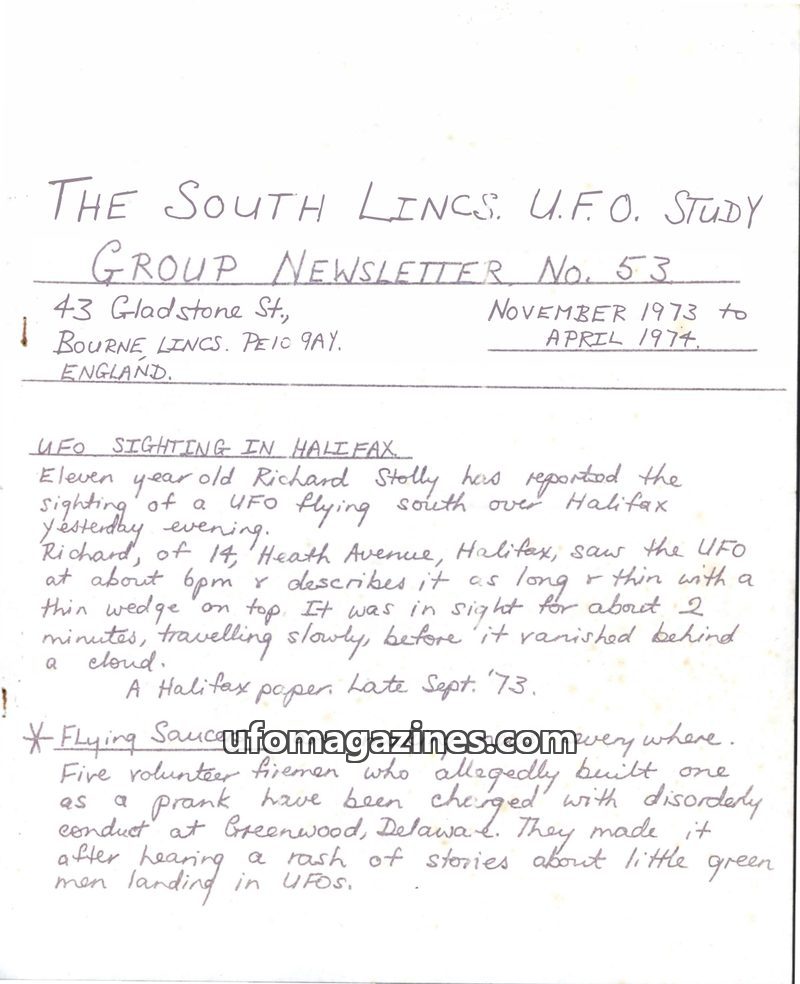 THE SOUTH LINCS. U.F.O. STUDY
GROUP NEWSLETTER No. 53
43 Gladstone St.,
BOURNE, LINCS. PE10 9AY.
ENGLAND.
NOVEMBER 1973 to
APRIL 1974.
UFO SIGHTING IN HALIFAX
Eleven year old Richard Stolly has reported the
sighting of a UFO flying south over Halifax
yesterday evening.
Richard, of 14, Heath Avenue, Halifax, saw the UFO
at about 6pm & describes it as long & thin with a
thin wedge on top. It was in sight for about 2
minutes, travelling slowly, before it vanished behind
a cloud.
A Halifax paper. Late Sept. '73.
* Flying Sauce everywhere.
ufomagazines.com
Five volunteer firemen who allegedly built one
as a prank have been charged with disorderly
conduct at Greenwood, Delaware. They made it
after hearing a rash of stories about little green
men landing in UFOs.